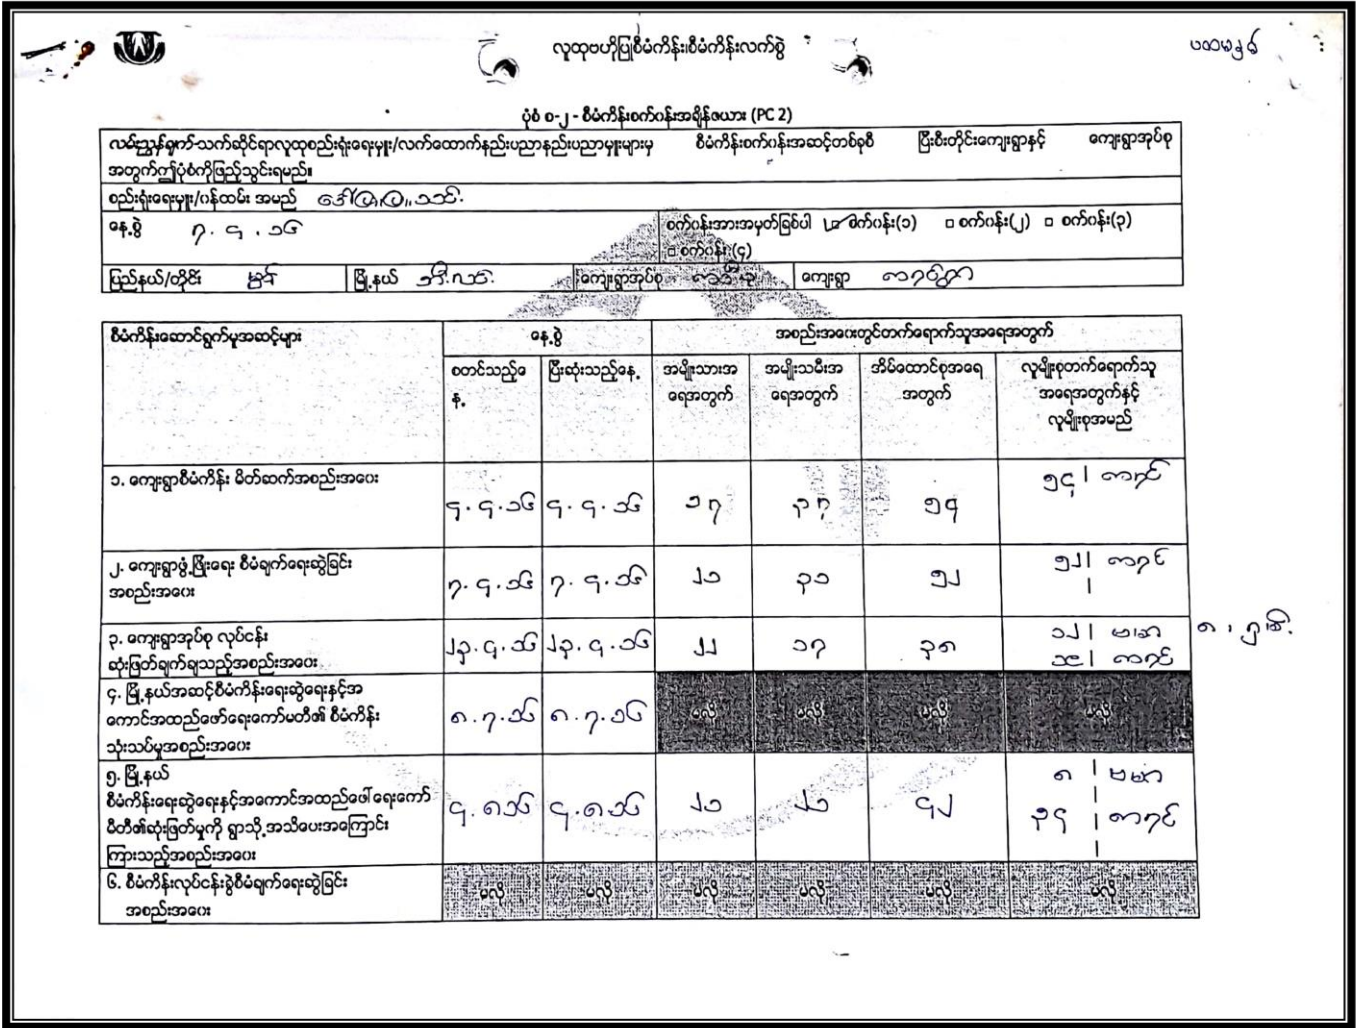 လူထုဗဟိုပြုစီမံကိန်း၊စီမံကိန်းလက်စွဲ
ပထမနှစ်
ပုံစံ စ-၂ - စီမံကိန်းစက်ဝန်းအချိန်ဇယား (PC 2)
လမ်းညွှန်ချက်-သက်ဆိုင်ရာလူထုစည်းရုံးရေးမှူး/လက်ထောက်နည်းပညာနည်းပညာမှူးများမှ စီမံကိန်းစက်ဝန်းအဆင့်တစ်ခုစီ ပြီးစီးတိုင်းကျေးရွာနှင့် ကျေးရွာအုပ်စု
အတွက်ဤပုံစံကိုဖြည့်သွင်းရမည်။
စည်းရုံးရေးမှူး/ဝန်ထမ်း အမည်
နေ့စွဲ ၇.၄.၁၆ စက်ဝန်းအားအမှတ်ခြစ်ပါ စက်ဝန်း(၁) □ စက်ဝန်း(၂) □ စက်ဝန်း(၃)
□ စက်ဝန်း (၄)
ပြည်နယ်/တိုင်း မွန် မြို့နယ် ဘီးလင်း ကျေးရွာအုပ်စု ကျေးရွာ
စီမံကိန်းဆောင်ရွက်မှုအဆင့်များ နေ့စွဲ အစည်းအဝေးတွင်တက်ရောက်သူအရေအတွက်
စတင်သည့်နေ့ ပြီးဆုံးသည့်နေ့ အမျိုးသားအရေအတွက် အမျိုးသမီးအရေအတွက် အိမ်ထောင်စုအရေအတွက် လူမျိုးစုတက်ရောက်သူအရေအတွက်နှင့်လူမျိုးစုအမည်
၁. ကျေးရွာစီမံကိန်း မိတ်ဆက်အစည်းအဝေး
၄.၄.၁၆ ၄.၄.၁၆ ၁၇ ၃၇ ၅၄ ၅၄ | ကရင်
၂. ကျေးရွာဖွံ့ဖြိုးရေး စီမံချက်ရေးဆွဲခြင်း
အစည်းအဝေး
၇.၄.၁၆ ၇.၄.၁၆ ၂၁ ၃၁ ၅၂ ၅၂ | ကရင်
၃. ကျေးရွာအုပ်စု လုပ်ငန်း
ဆုံးဖြတ်ချက်ချသည့်အစည်းအဝေး
၂၃.၄.၁၆ ၂၃.၄.၁၆ ၂၂ ၁၇ ၃၈ ၁၂ | ဗမာ
| ကရင်
၄. မြို့နယ်အဆင့်စီမံကိန်းရေးဆွဲရေးနှင့်အ
ကောင်အထည်ဖော်ရေးကော်မတီ၏ စီမံကိန်း
သုံးသပ်မှုအစည်းအဝေး
၈.၇.၁၆ ၈.၇.၁၆ မလို မလို မလို မလို
၅. မြို့နယ်
စီမံကိန်းရေးဆွဲရေးနှင့်အကောင်အထည်ဖေါ်ရေးကော်
မီတီ၏ဆုံးဖြတ်မှုကို ရွာသို့အသိပေးအကြောင်း
ကြားသည့်အစည်းအဝေး
၄.၈.၁၆ ၄.၈.၁၆ ၂၁ ၂၁ ၄၂ ၈ | ဗမာ
၃၄ | ကရင်
၆. စီမံကိန်းလုပ်ငန်းခွဲစီမံချက်ရေးဆွဲခြင်း
အစည်းအဝေး
မလို မလို မလို မလို မလို မလို